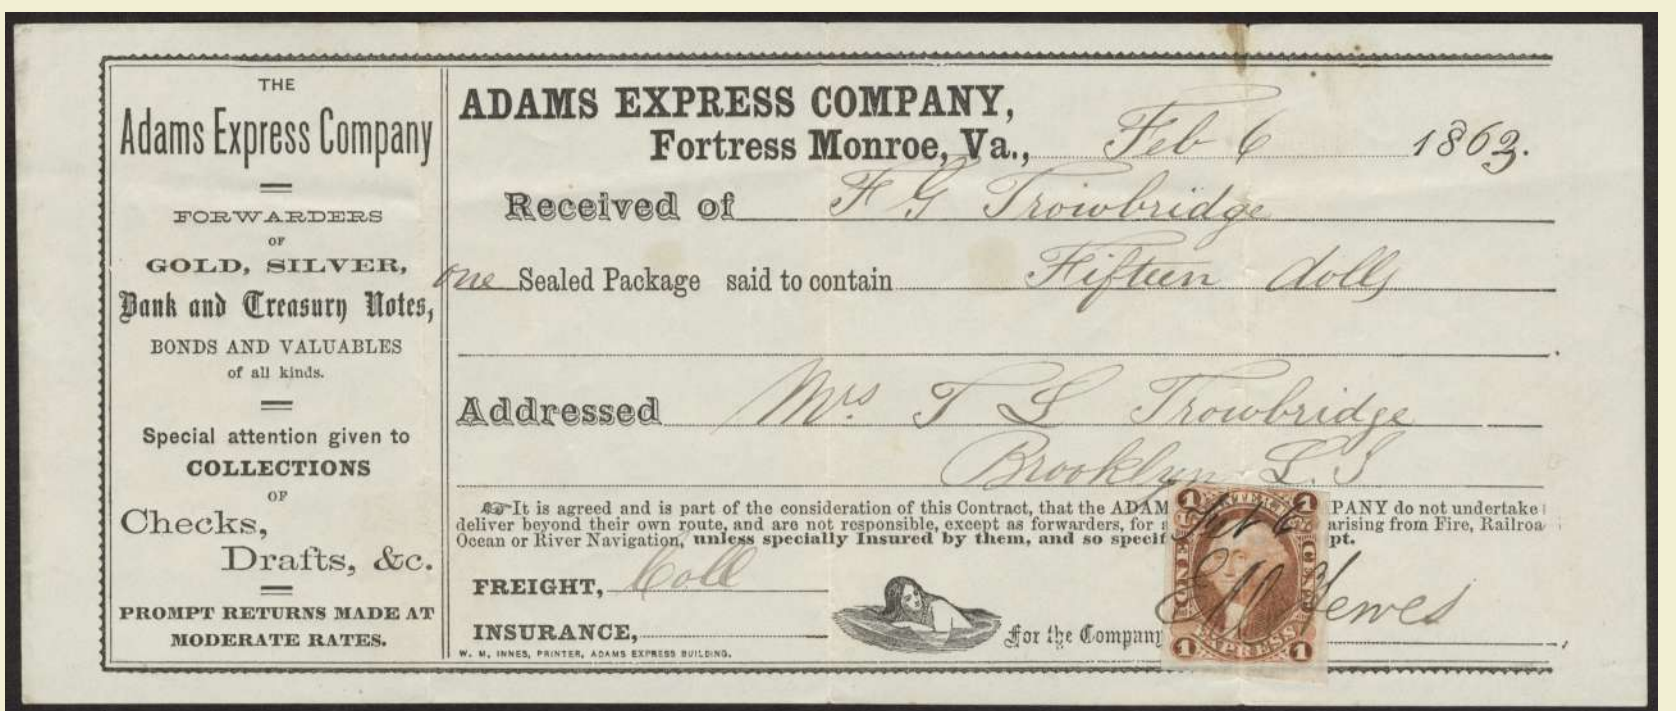 THE
Adams Express Company
FORWARDERS
OF
GOLD, SILVER,
Bank and Treasury Notes,
BONDS AND VALUABLES
of all kinds.
Special attention given to
COLLECTIONS
OF
Checks,
Drafts, &c.
PROMPT RETURNS MADE AT
MODERATE RATES.
ADAMS EXPRESS COMPANY,
Fortress Monroe, Va., Feb 6 1863.
Received of F G Trowbridge
one Sealed Package said to contain Fifteen dolls
Addressed Mrs. T L Trowbridge
Brooklyn L. I
It is agreed and is part of the consideration of this Contract, that the ADAM PANY do not undertake
deliver beyond their own route, and are not responsible, except as forwarders, for arising from Fire, Railroa
Ocean or River Navigation, unless specially Insured by them, and so specif pt.
FREIGHT, Coll
INSURANCE,
W. M. INNES, PRINTER, ADAMS EXPRESS BUILDING.
For the Company
1 INTER 1
Feb 6
ONE CENT
EXPRESS
1 1